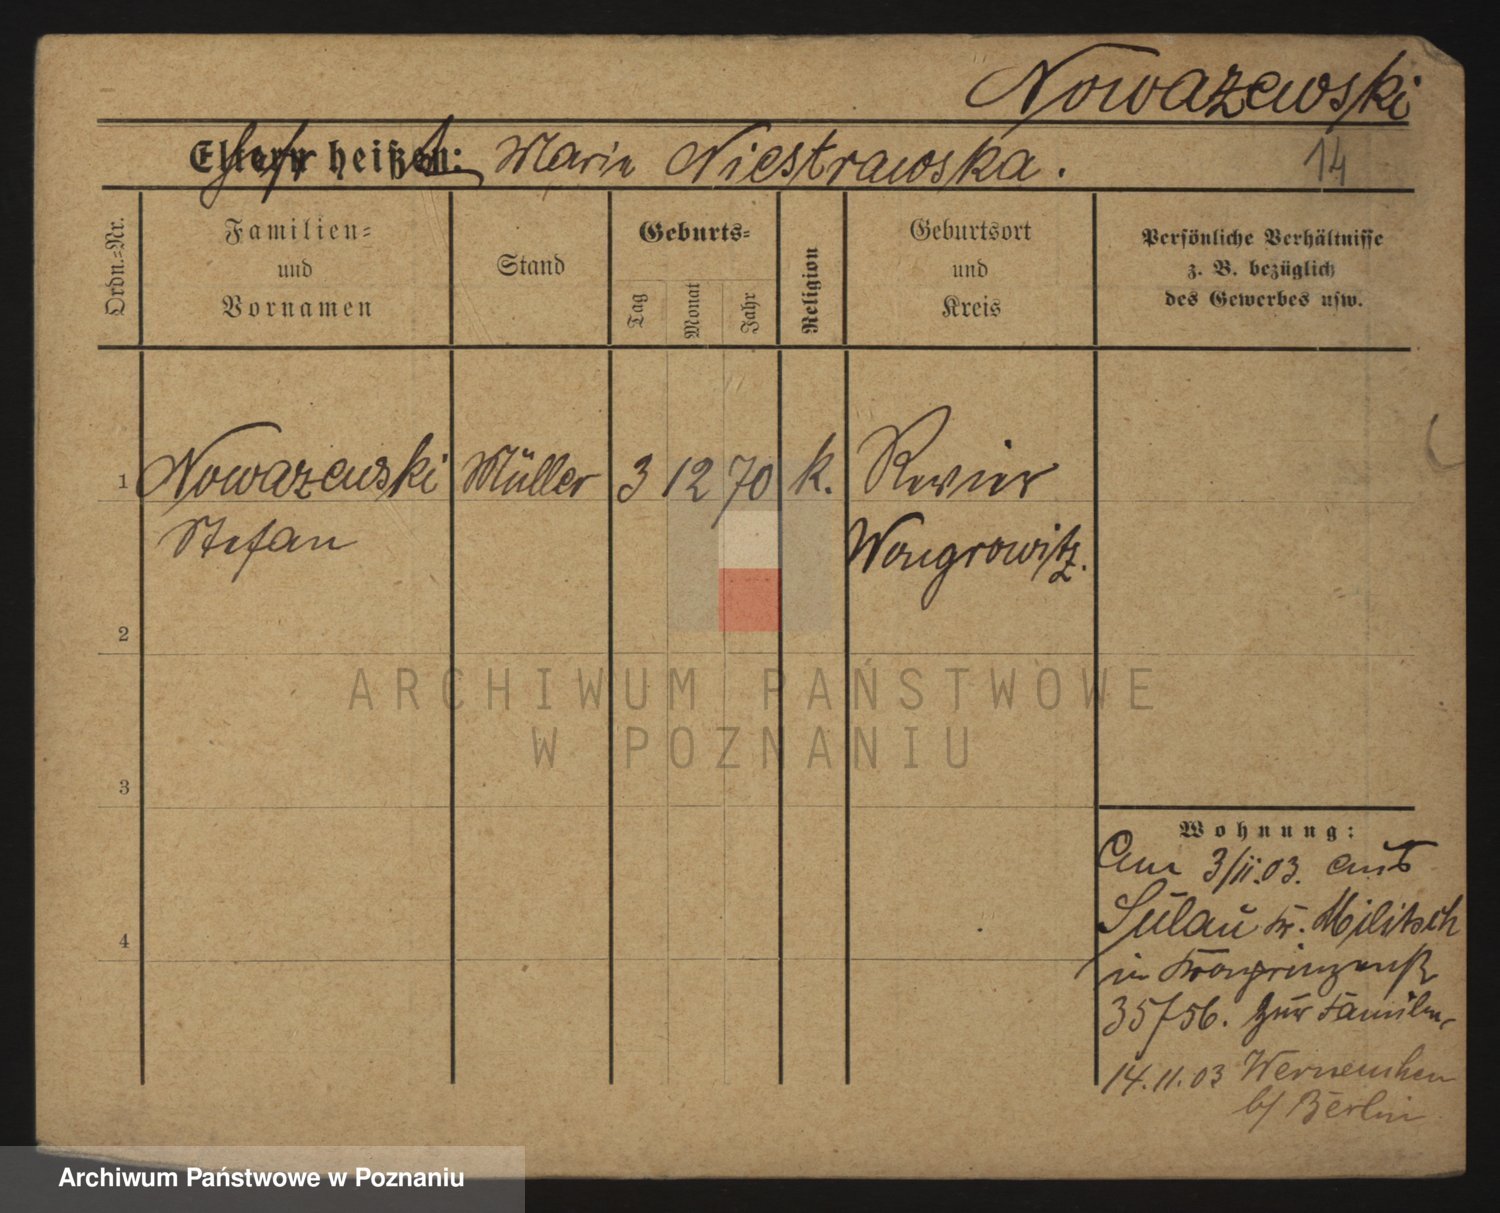 Nowazewski
Eltern heißen: Maria Niestrawska.
14
Ordn.-Nr.
Familien-
und
Vornamen
Stand
Geburts-
Tag
Monat
Jahr
Religion
Geburtsort
und
Kreis
Persönliche Verhältnisse
z. B. bezüglich
des Gewerbes usw.
1 Nowazewski Müller 3 12 70 k. Revier
Stefan Wongrowitz.
2
3
4
Wohnung:
Am 3/11.03. aus
Sulau Kr. Militsch
in Kronprinzenstr
35756. zur Familie
14.11.03 Werneuchen
b/ Berlin
ARCHIWUM PAŃSTWOWE
W POZNANIU
Archiwum Państwowe w Poznaniu